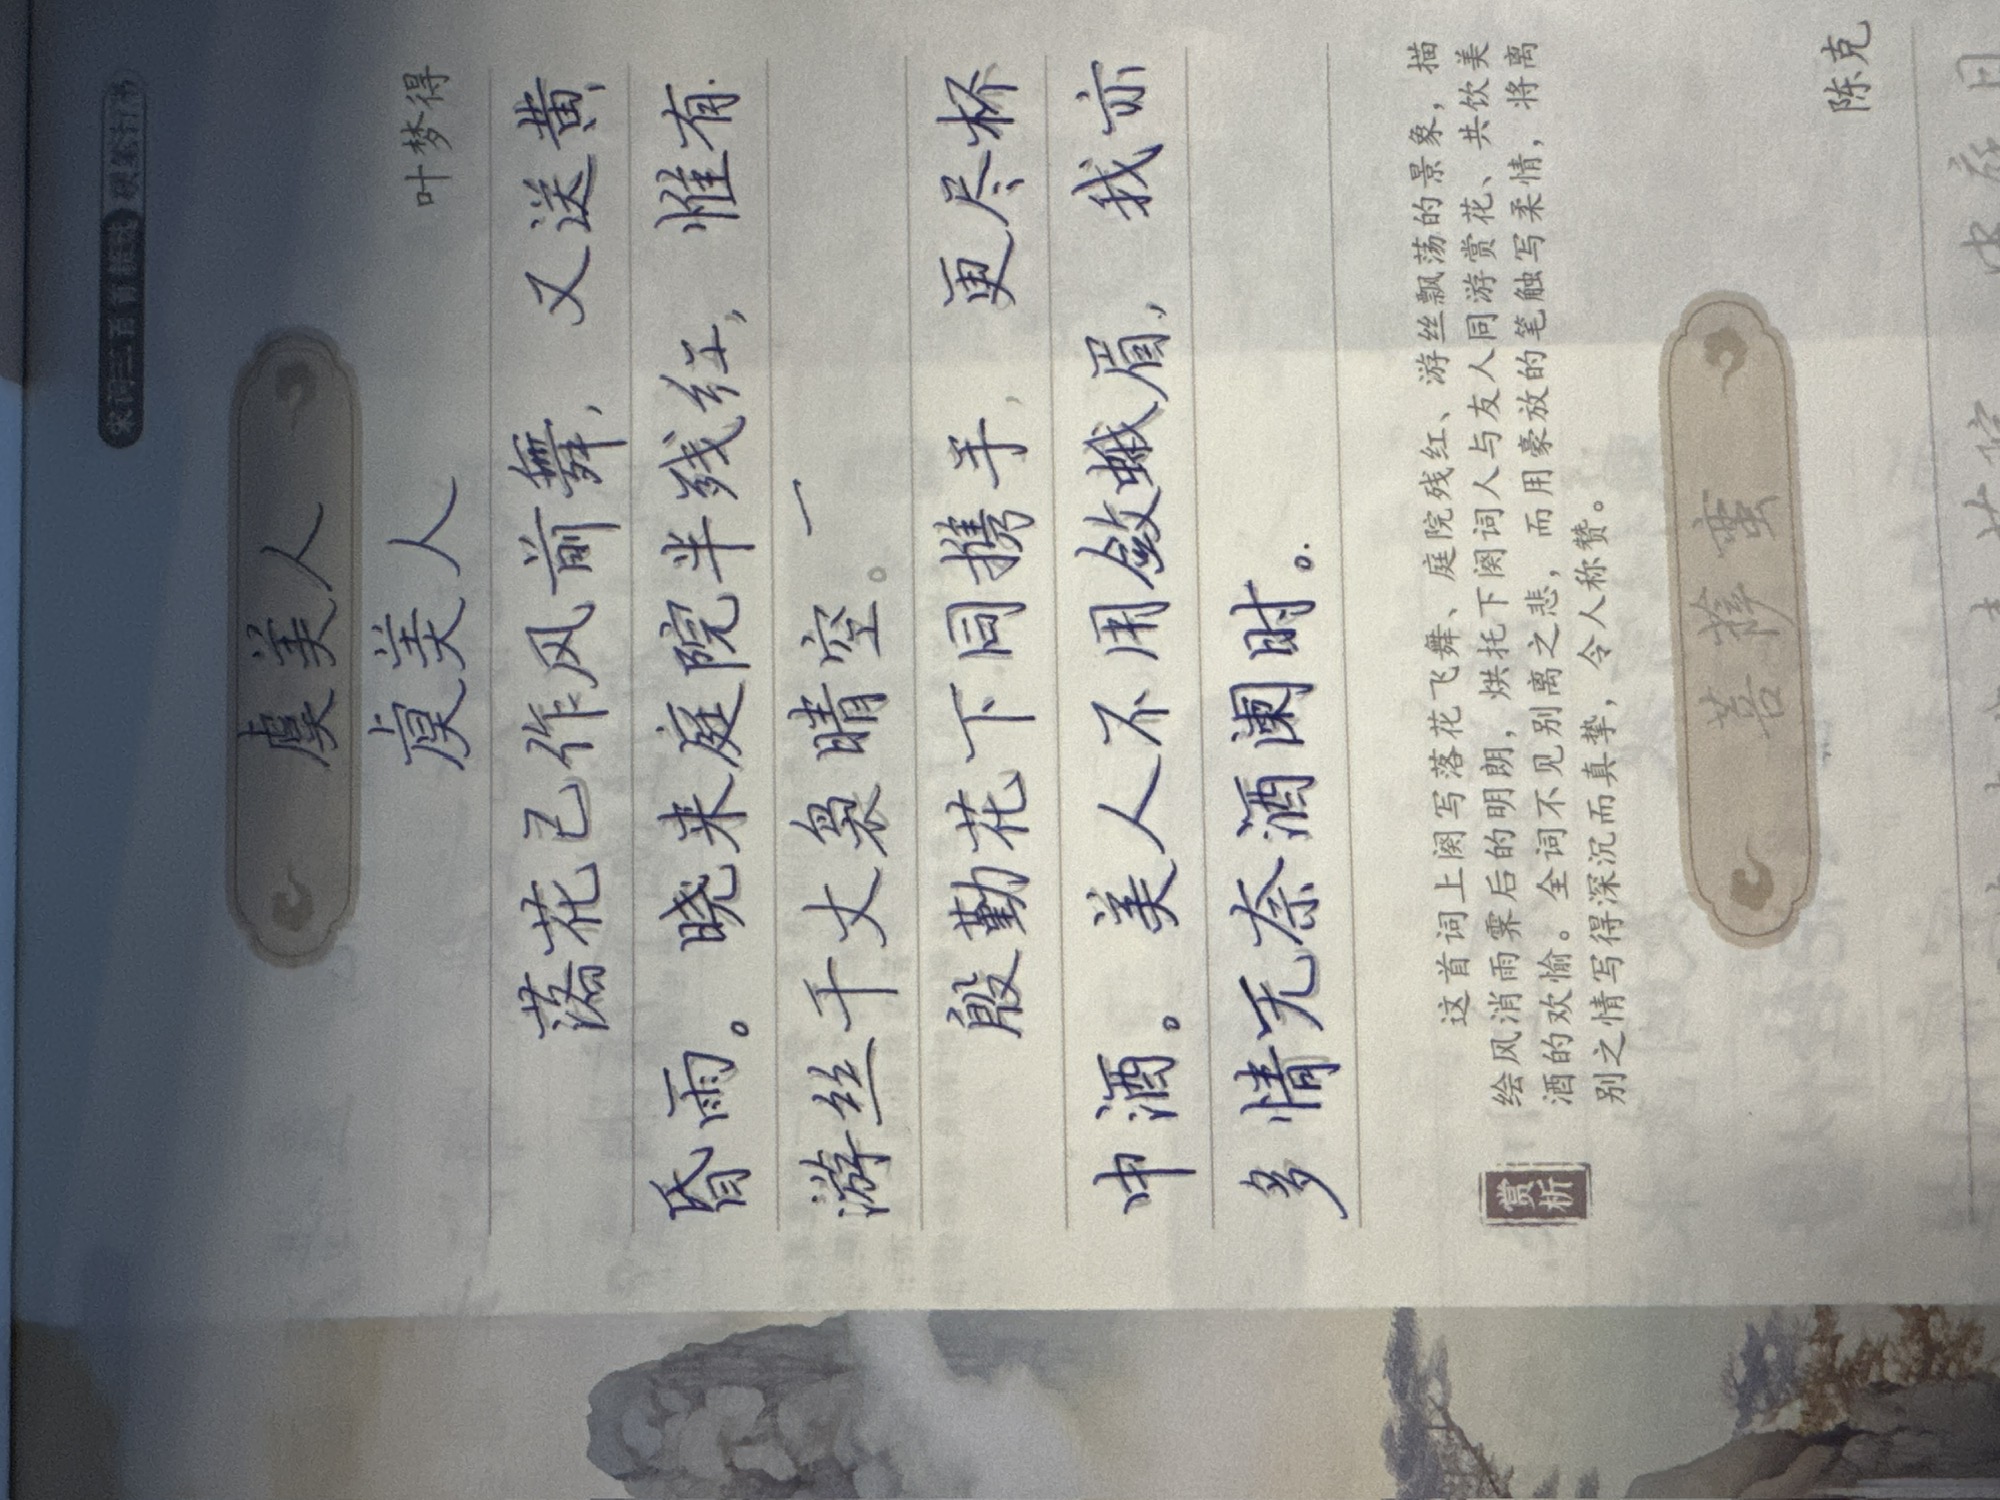 宋词三百首精选 硬笔行书
虞美人
虞美人
叶梦得
落花已作风前舞，又送黄
昏雨。晓来庭院半残红，惟有
游丝千丈袅晴空。一
殷勤花下同携手，更尽杯
中酒。美人不用敛蛾眉，我亦
多情无奈酒阑时。
赏析
这首词上阕写落花飞舞、庭院残红、游丝飘荡的景象，描
绘风消雨霁后的明朗，烘托下阕词人与友人同游赏花、共饮美
酒的欢愉。全词不见别离之悲，而用豪放的笔触写柔情，将离
别之情写得深沉而真挚，令人称赞。
菩萨蛮
陈克